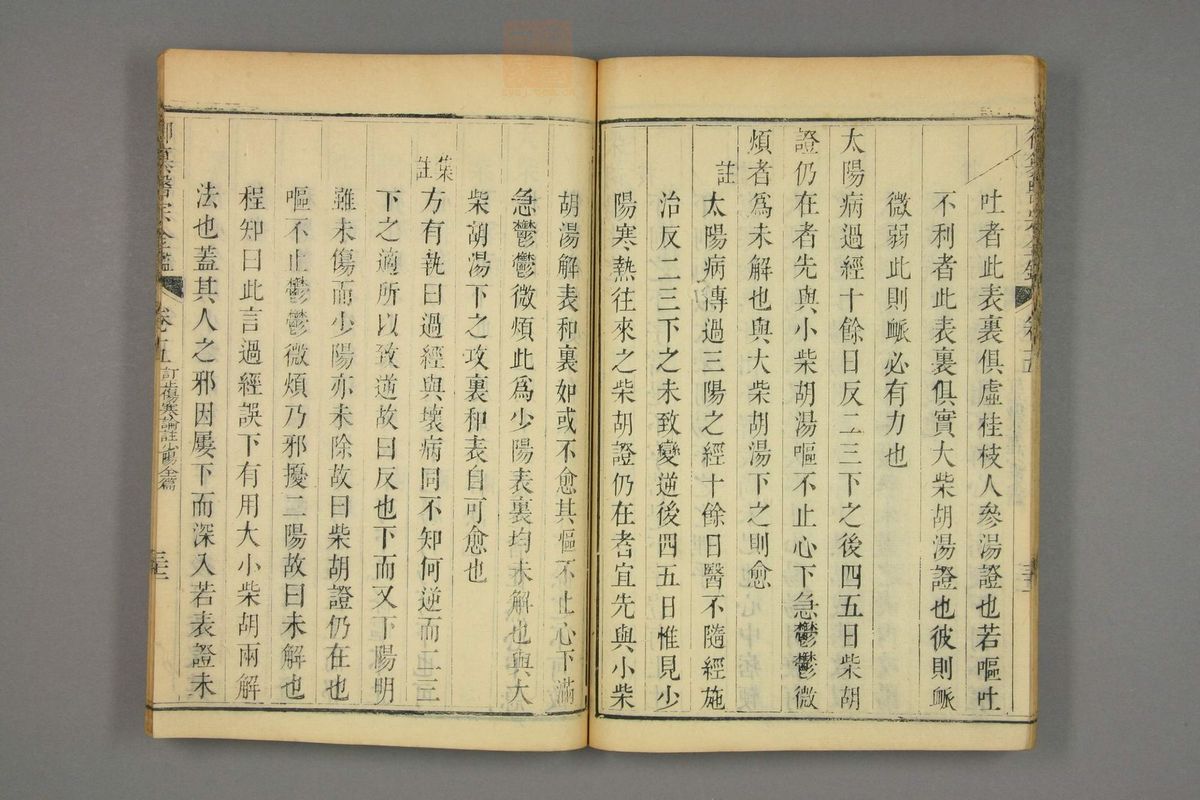 吐者此表裏俱虛桂枝人參湯證也若嘔吐
不利者此表裏俱實大柴胡湯證也彼則脈
微弱此則脈必有力也
太陽病過經十餘日反二三下之後四五日柴胡
證仍在者先與小柴胡湯嘔不止心下急鬱鬱微
煩者爲未解也與大柴胡湯下之則愈
註
太陽病傳過三陽之經十餘日醫不隨經施
治反二三下之未致變逆後四五日惟見少
陽寒熱往來之柴胡證仍在者宜先與小柴
胡湯解表和裏如或不愈其嘔不止心下滿
急鬱鬱微煩此爲少陽表裏均未解也與大
柴胡湯下之攻裏和表自可愈也
集註
方有執曰過經與壞病同不知何逆而二三
下之適所以致逆故曰反也下而又下陽明
雖未傷而少陽亦未除故曰柴胡證仍在也
嘔不止鬱鬱微煩乃邪擾二陽故曰未解也
程知曰此言過經誤下有用大小柴胡兩解
法也蓋其人之邪因屢下而深入若表證未
御纂醫宗金鑑
卷五
訂正傷寒論註少陽全篇